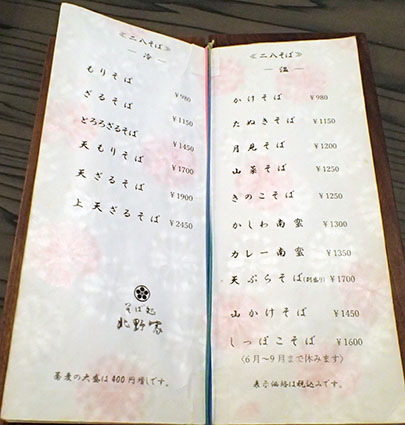 ≪二八そば≫
― 冷 ―
もりそば ¥980
ざるそば ¥1150
とろろざるそば ¥1450
天もりそば ¥1700
天ざるそば ¥1900
上天ざるそば ¥2450
そば処
北野家
蕎麦の大盛は400円増しです。
≪二八そば≫
― 温 ―
かけそば ¥980
たぬきそば ¥1150
月見そば ¥1200
山菜そば ¥1250
きのこそば ¥1250
かしわ南蛮 ¥1300
カレー南蛮 ¥1350
天ぷらそば(別盛り) ¥1700
山かけそば ¥1450
しっぽこそば ¥1600
〈6月~9月まで休みます〉
表示価格は税込みです。